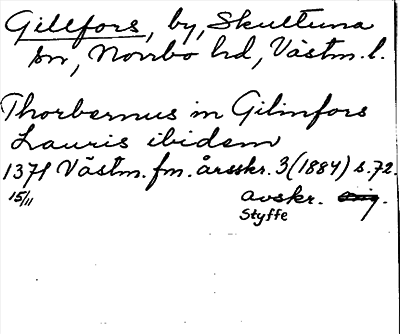 Gillfors, by, Skultuna
sn, Norrbo hd, Västm. l.
Thorbernus in Gilinfors
Lauris ibidem
1371 Västm. fm. årsskr. 3 (1884) s. 72.
15/11 avskr. orig.
Styffe